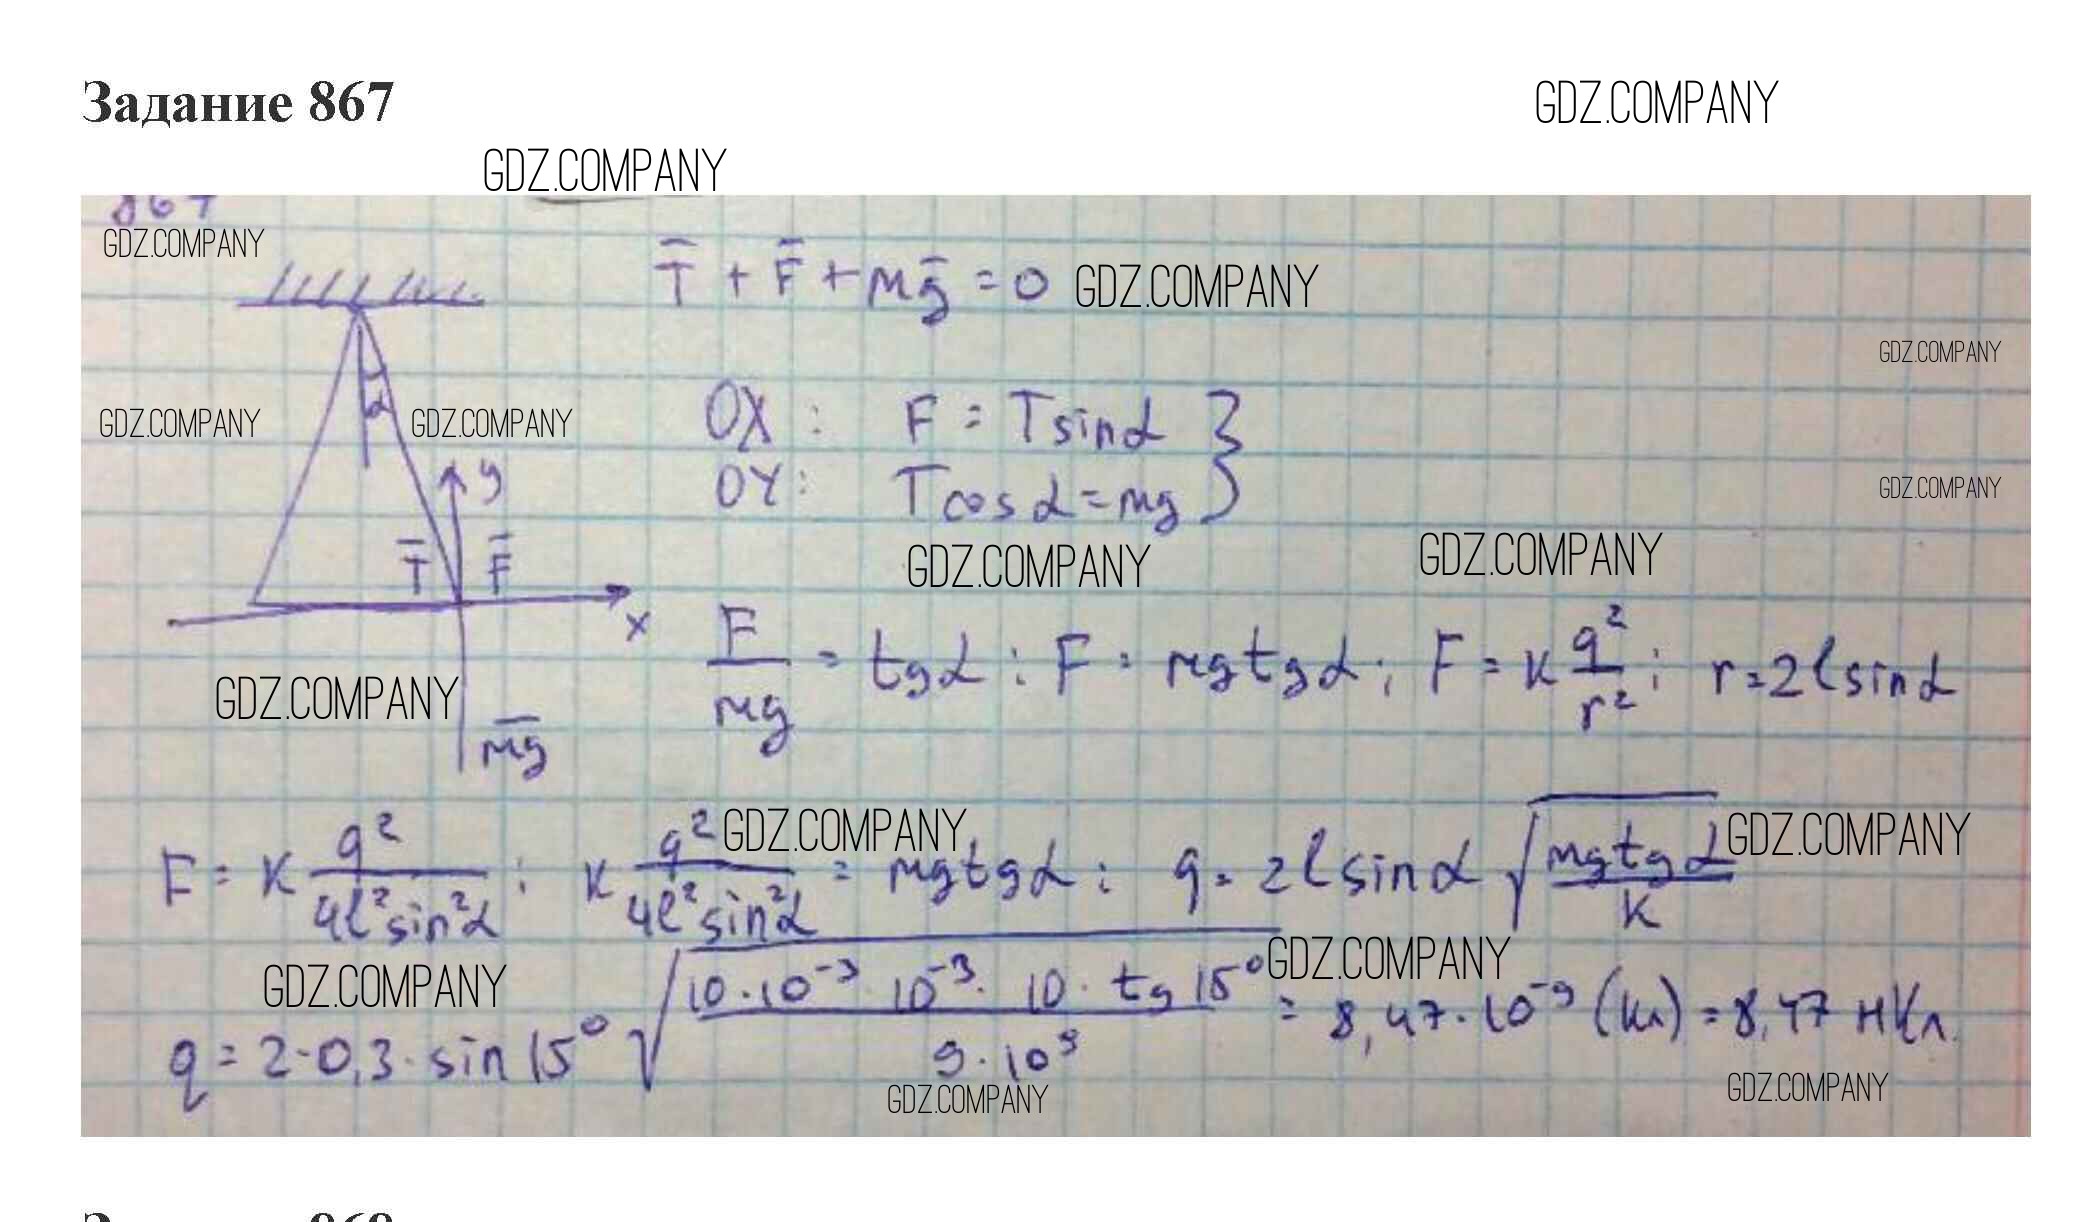 Задание 867
GDZ.COMPANY
GDZ.COMPANY
867
GDZ.COMPANY
T̅ + F̅ + mg̅ = 0
GDZ.COMPANY
GDZ.COMPANY
α
GDZ.COMPANY
GDZ.COMPANY
OX : F = Tsinα }
OY : Tcosα = mg
GDZ.COMPANY
y
T̅ F̅
x
GDZ.COMPANY
GDZ.COMPANY
F/mg = tgα ; F = mgtgα ; F = k q²/r² ; r = 2lsinα
GDZ.COMPANY
mg̅
GDZ.COMPANY
GDZ.COMPANY
F = k q²/4l²sin²α ; k q²/4l²sin²α = mgtgα ; q = 2lsinα √(mgtgα/k)
GDZ.COMPANY
GDZ.COMPANY
q = 2·0,3·sin 15° √(10·10⁻³·10⁻³·10·tg 15°/9·10⁹) = 8,47·10⁻⁹ (Кл) = 8,47 нКл.
GDZ.COMPANY
GDZ.COMPANY